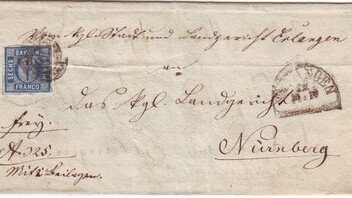 Vom kgl. Stadt und Landgericht Erlangen
an
BAYERN
SECHS
FRANCO
das kgl. Landgericht
frey.
Nürnberg
No 325.
Mit 2 Beilagen.